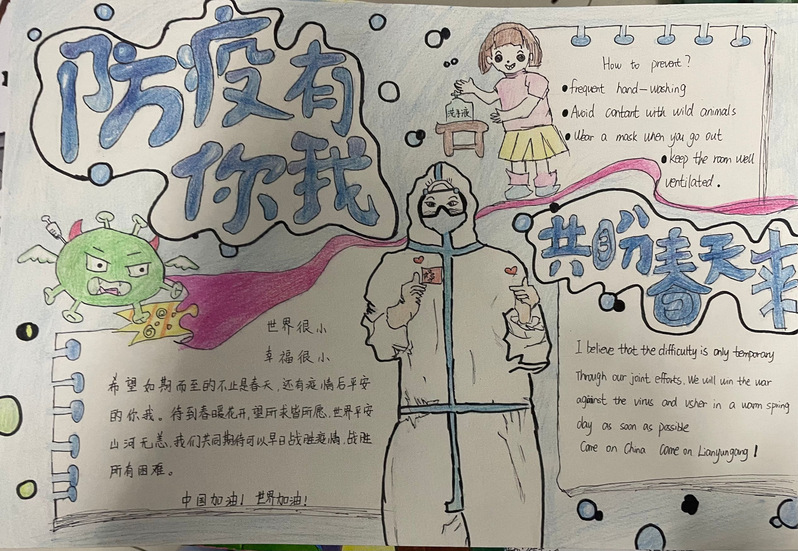 防疫有
你我
洗手液
How to prevent?
frequent hand-washing
Avoid contant with wild animals
Wear a mask when you go out
keep the room well
ventilated.
共盼春天来
世界很小
幸福很小
希望如期而至的不止是春天,还有疫情后平安
的你我。待到春暖花开,望所求皆所愿,世界平安
山河无恙,我们共同期待可以早日战胜疫情,战胜
所有困难。
中国加油!世界加油!
I believe that the difficulty is only temporary
Through our joint efforts. We will win the war
against the virus and usher in a warm spring
day as soon as possible
Come on China Come on Lianyungang!